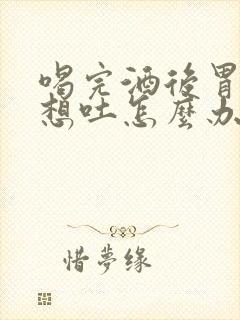 喝完酒後胃
想吐怎麼办
惜夢缘